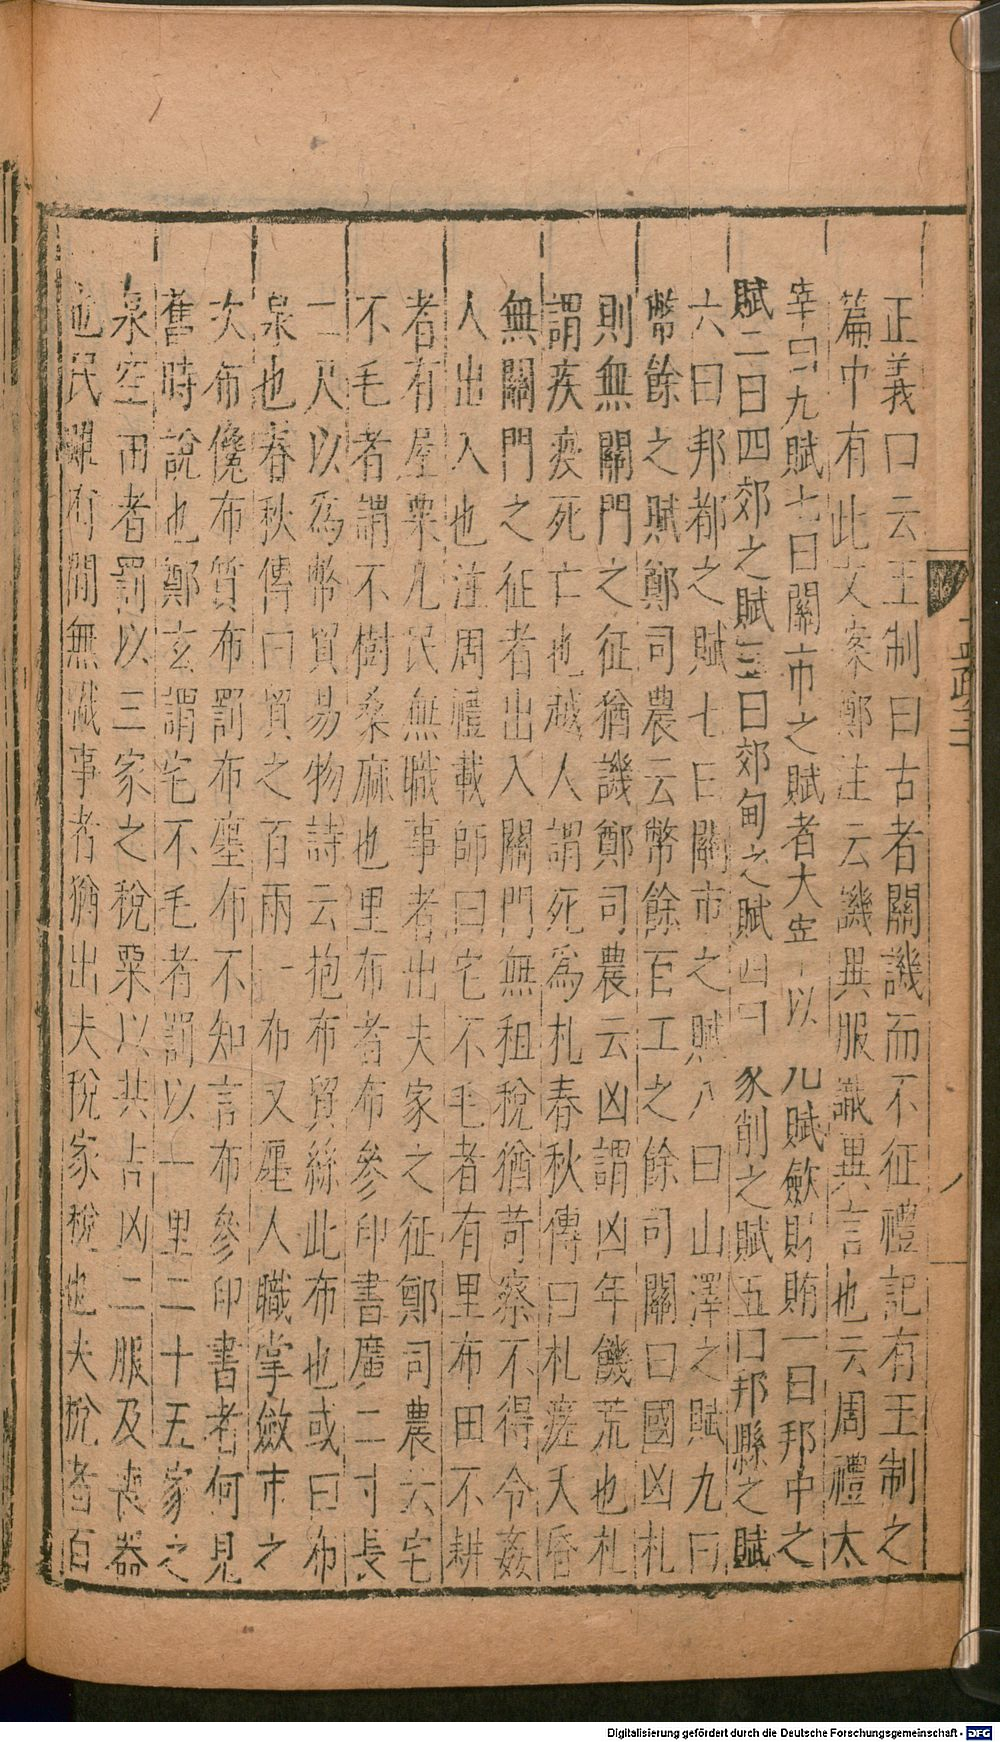 正義曰云王制曰古者關譏而不征禮記有王制之
篇中有此文案鄭注云譏異服識異言也云周禮太
宰曰九賦七曰關市之賦者大宰以九賦斂財賄一曰邦中之
賦二曰四郊之賦三曰郊甸之賦四曰家削之賦五曰邦縣之賦
六曰邦都之賦七曰關市之賦八曰山澤之賦九曰
幣餘之賦鄭司農云幣餘百工之餘司關曰國凶札
則無關門之征猶譏鄭司農云凶謂凶年饑荒也札
謂疾疫死亡也越人謂死爲札春秋傳曰札瘥夭昏
無關門之征者出入關門無租稅猶苛察不得令姦
人出入也注周禮載師曰宅不毛者有里布田不耕
者有屋粟凡民無職事者出夫家之征鄭司農云宅
不毛者謂不樹桑麻也里布者布參印書廣二寸長
二尺以爲幣貿易物詩云抱布貿絲此布也或曰布
泉也春秋傳曰買之百兩一布又廛人職掌斂市之
次布儳布質布罰布廛布不知言布參印書者何見
舊時說也鄭玄謂宅不毛者罰以一里二十五家之
泉空田者罰以三家之稅粟以共吉凶二服及喪器
也民雖有閒無職事者猶出夫稅家稅也夫稅者百
八
Digitalisierung gefördert durch die Deutsche Forschungsgemeinschaft - DFG